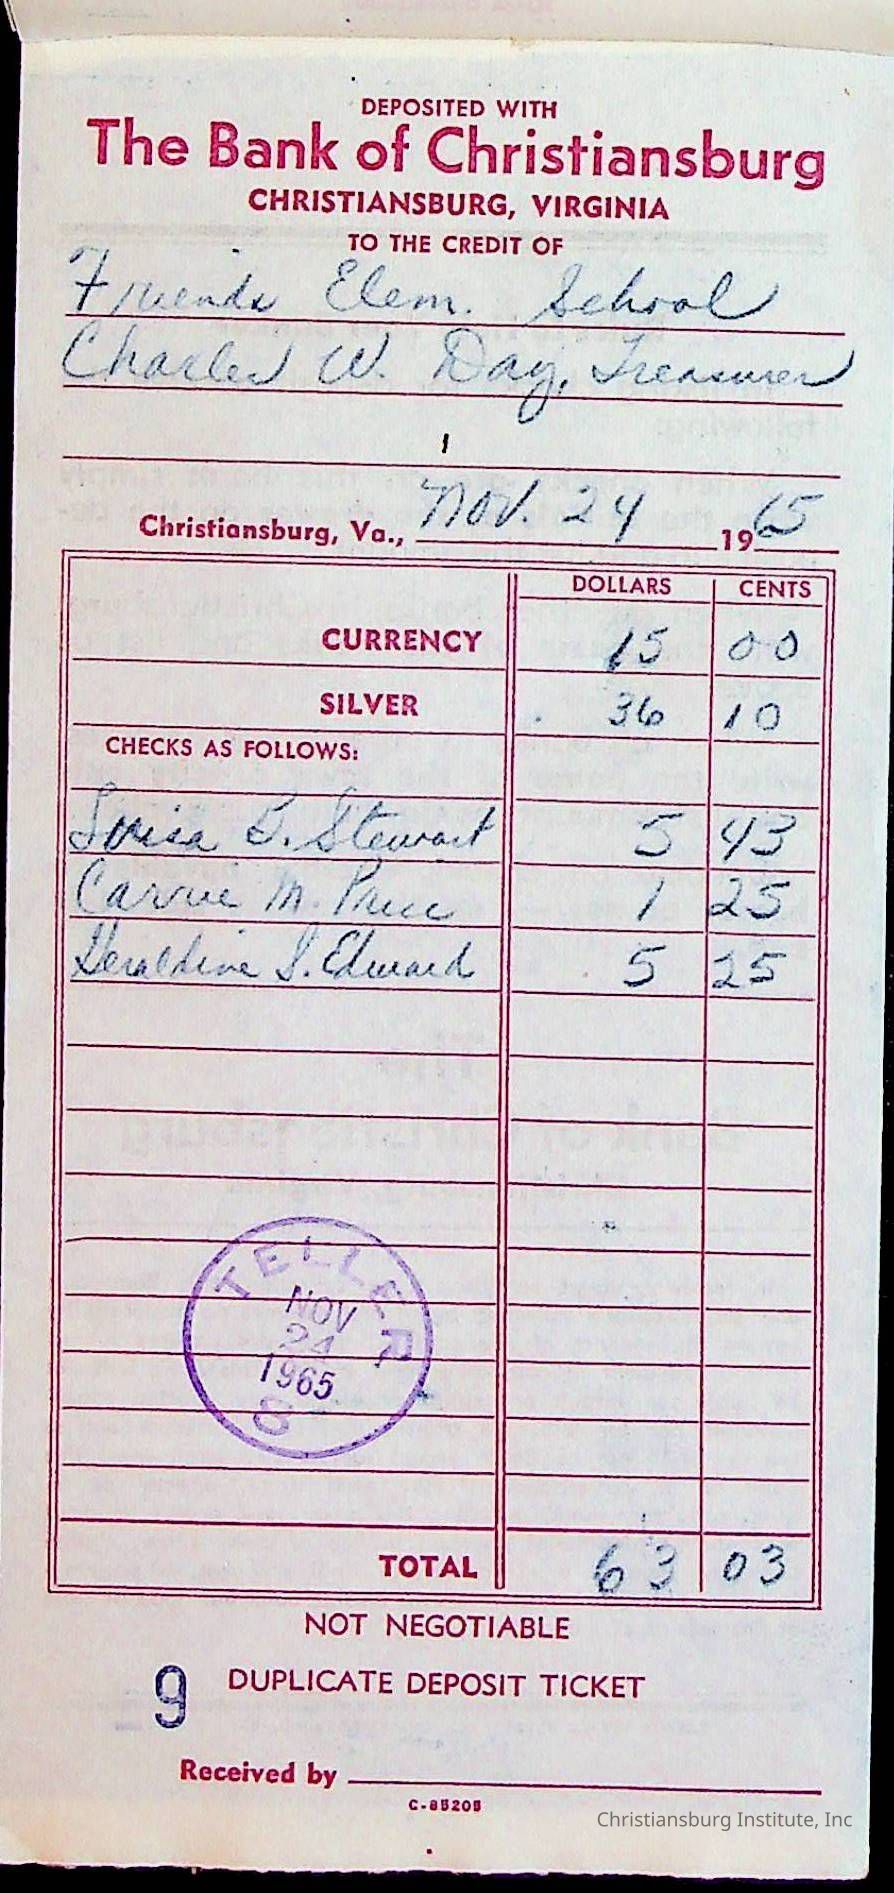 DEPOSITED WITH
The Bank of Christiansburg
CHRISTIANSBURG, VIRGINIA
TO THE CREDIT OF
Friends Elem. School
Charles W. Day, Treasurer
Christiansburg, Va., Nov. 24 1965
DOLLARS CENTS
CURRENCY 15 00
SILVER 36 10
CHECKS AS FOLLOWS:
Louisa B. Stewart 5 43
Carrie M. Price 1 25
Geraldine S. Edward 5 25
TELLER
NOV
24
1965
8
TOTAL 63 03
NOT NEGOTIABLE
9 DUPLICATE DEPOSIT TICKET
Received by
C-85205
Christiansburg Institute, Inc